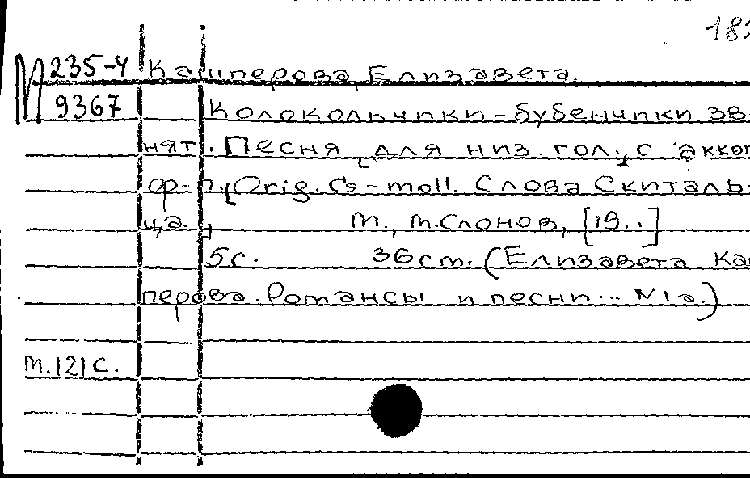 182
М 235-4 Кашперова, Елизавета.
9367 Колокольчики-бубенчики зве
нят. Песня для низ. гол. с аккоп
фр-п. [Orig. Cs-moll. Слова Скиталь-
ца]. М., М. Слонов, [19..]
5с. 36 cm. (Елизавета Ка
перова. Романсы и песни... N1a.)
м. 121 с.